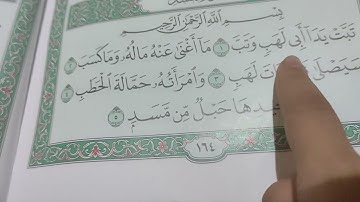 بِسْمِ اللَّهِ الرَّحْمَٰنِ الرَّحِيمِ
تَبَّتْ يَدَا أَبِي لَهَبٍ وَتَبَّ ١ مَا أَغْنَىٰ عَنْهُ مَالُهُ وَمَا كَسَبَ ٢
سَيَصْلَىٰ ات لَهَبٍ ٣ وَامْرَأَتُهُ حَمَّالَةَ الْحَطَبِ ٤
يدِهَا حَبْلٌ مِّن مَّسَدٍ ٥
١٦٤